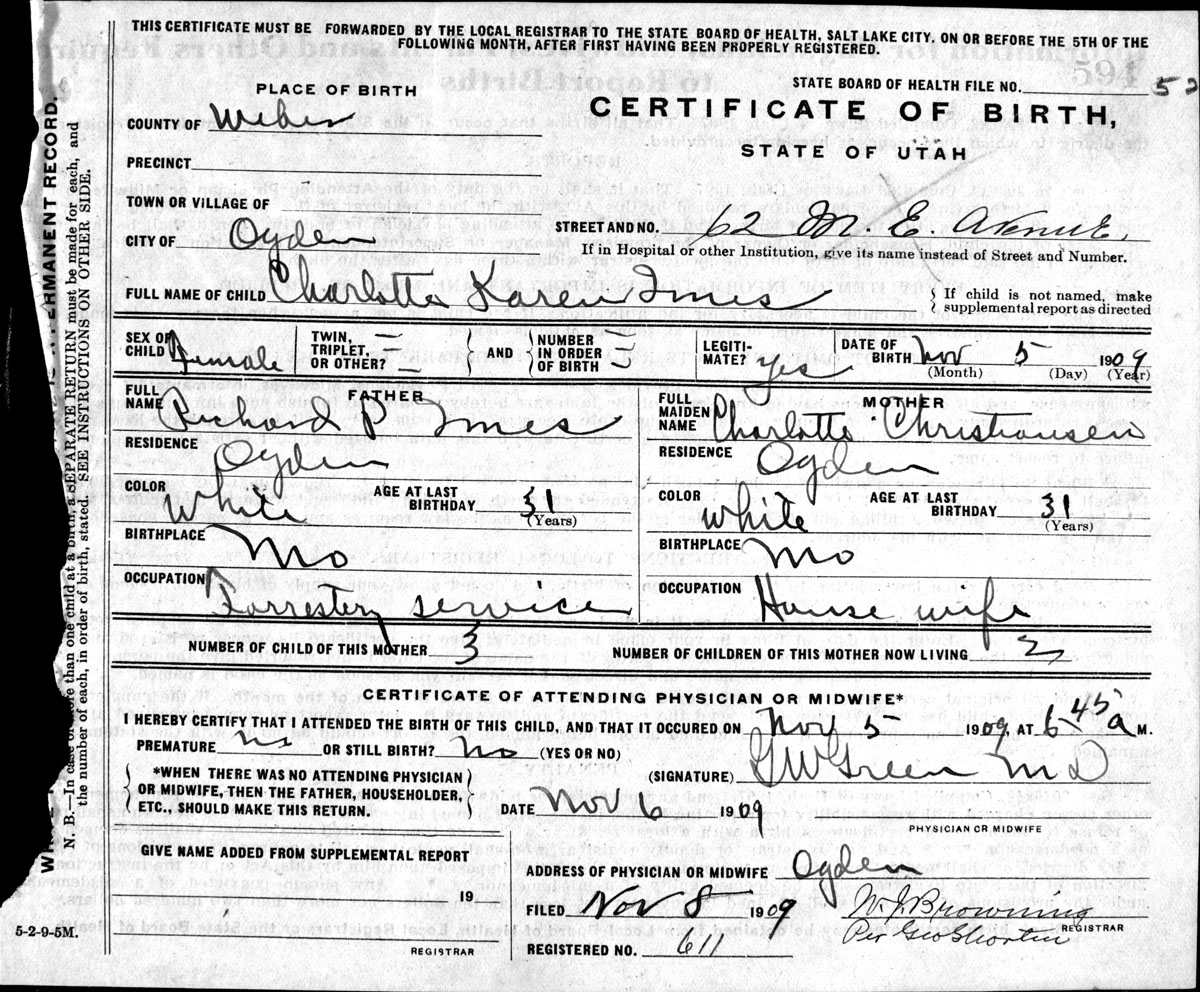 THIS CERTIFICATE MUST BE FORWARDED BY THE LOCAL REGISTRAR TO THE STATE BOARD OF HEALTH, SALT LAKE CITY, ON OR BEFORE THE 5TH OF THE
FOLLOWING MONTH, AFTER FIRST HAVING BEEN PROPERLY REGISTERED.
STATE BOARD OF HEALTH FILE NO.
PLACE OF BIRTH
CERTIFICATE OF BIRTH,
STATE OF UTAH
COUNTY OF Weber
PRECINCT
TOWN OR VILLAGE OF
CITY OF Ogden
STREET AND NO. 62 M. E. Avenue,
If in Hospital or other Institution, give its name instead of Street and Number.
FULL NAME OF CHILD Charlotte Karen Imes
If child is not named, make
supplemental report as directed
SEX OF CHILD Female
TWIN, TRIPLET, OR OTHER? =
AND
NUMBER IN ORDER OF BIRTH =
LEGITI-MATE? yes
DATE OF BIRTH Nov 5 1909
(Month) (Day) (Year)
FATHER
FULL NAME Orchard P Imes
RESIDENCE Ogden
COLOR White
AGE AT LAST BIRTHDAY 31
(Years)
BIRTHPLACE Mo
OCCUPATION Forrestery service
MOTHER
FULL MAIDEN NAME Charlotte Christiansen
RESIDENCE Ogden
COLOR White
AGE AT LAST BIRTHDAY 31
(Years)
BIRTHPLACE Mo
OCCUPATION House wife
NUMBER OF CHILD OF THIS MOTHER 3
NUMBER OF CHILDREN OF THIS MOTHER NOW LIVING
CERTIFICATE OF ATTENDING PHYSICIAN OR MIDWIFE*
I HEREBY CERTIFY THAT I ATTENDED THE BIRTH OF THIS CHILD, AND THAT IT OCCURED ON Nov 5 1909, AT 6 45 a M.
PREMATURE no OR STILL BIRTH? no (YES OR NO)
*WHEN THERE WAS NO ATTENDING PHYSICIAN
OR MIDWIFE, THEN THE FATHER, HOUSEHOLDER,
ETC., SHOULD MAKE THIS RETURN.
(SIGNATURE) G W Green M D
DATE Nov 6 1909
PHYSICIAN OR MIDWIFE
GIVE NAME ADDED FROM SUPPLEMENTAL REPORT
19
REGISTRAR
ADDRESS OF PHYSICIAN OR MIDWIFE Ogden
FILED Nov 8 1909
W. J. Browning
Per
REGISTRAR
REGISTERED NO. 611
5-2-9-5M.
PERMANENT RECORD.
N. B.—In case of more than one child at a birth, a SEPARATE RETURN must be made for each, and
the number of each, in order of birth, stated. SEE INSTRUCTIONS ON OTHER SIDE.